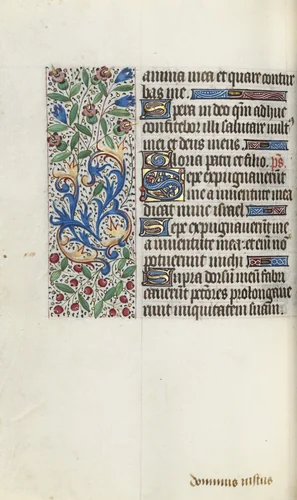 anima mea et quare contur
bas me.
Spera in deo qm̄ adhuc
confitebor illi salutare vult⁹
mei et deus meus
Gloria patri et filio. ps.
Sepe expugnaverūt
me a iuventute mea
dicat nunc israel
Sepe expugnaverūt me
a iuventute mea et eni nō
potuerunt michi
Supra dorsū meū fabri
caverūt pctōres prolongave
runt iniquitatem suam.
dominus iustus